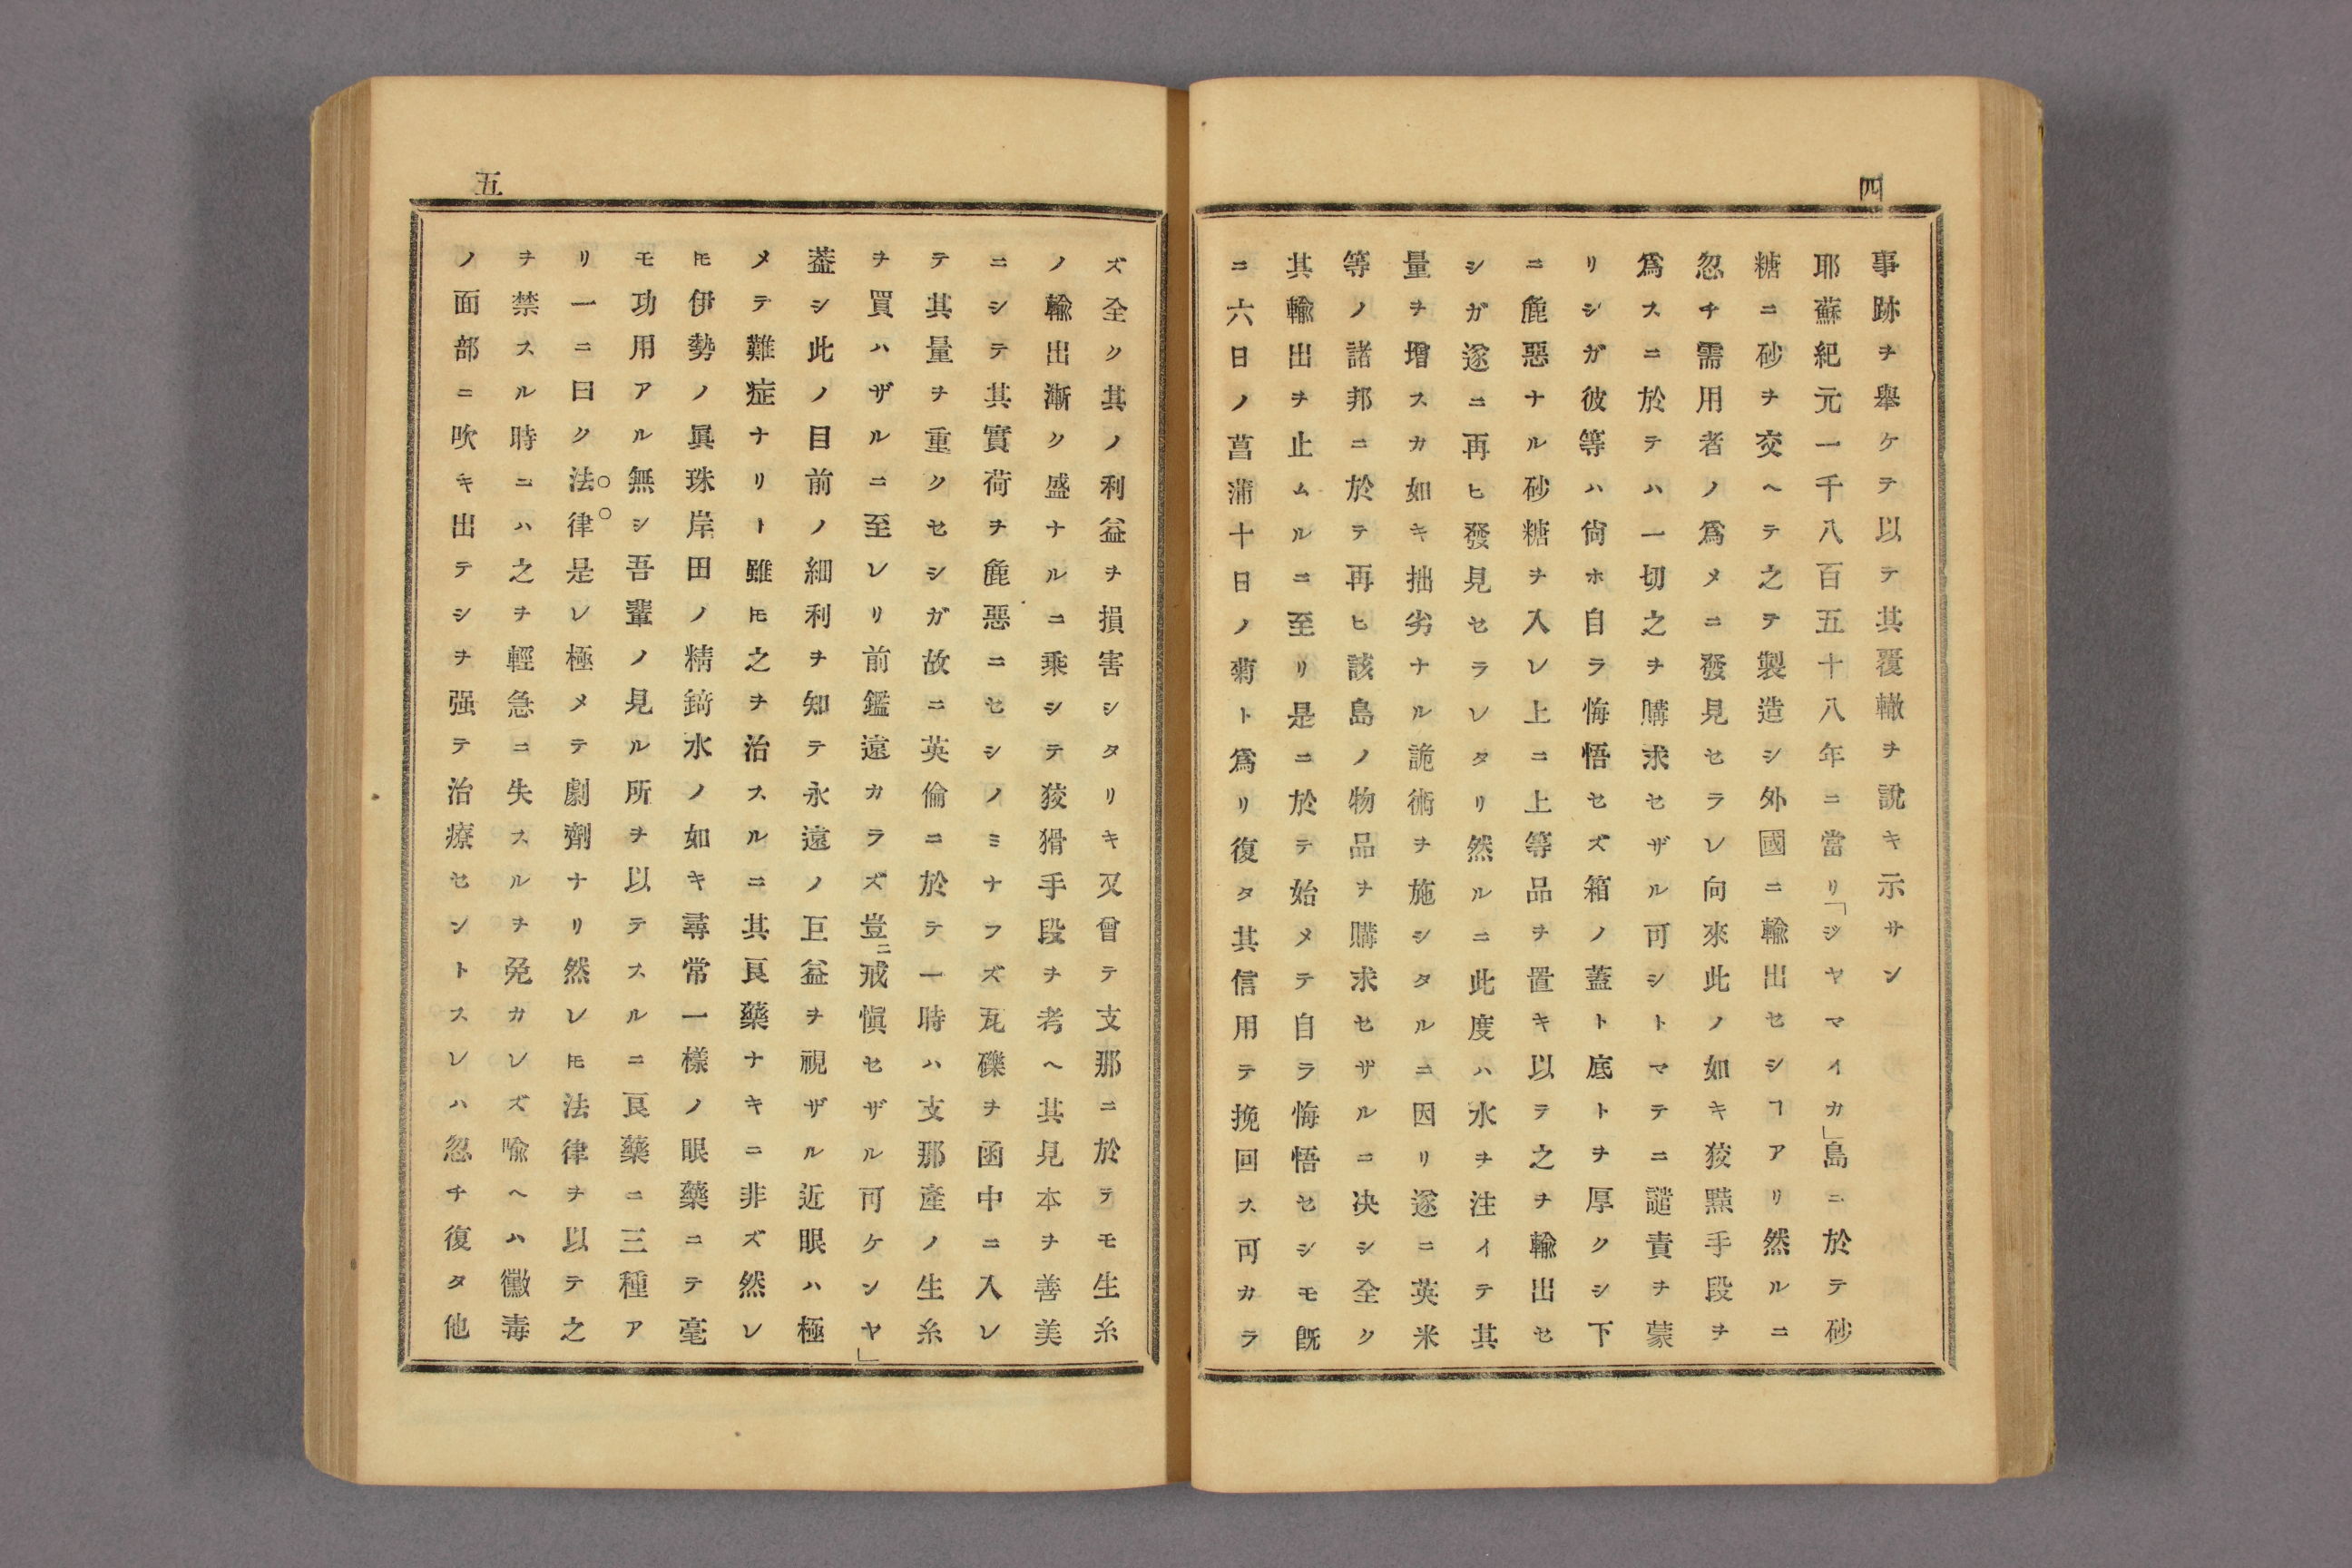 四
事跡ヲ擧ケテ以テ其覆轍ヲ說キ示サン
耶蘇紀元一千八百五十八年ニ當リ「ジヤマイカ」島ニ於テ砂
糖ニ砂ヲ交ヘテ之テ製造シ外國ニ輸出セシヿアリ然ルニ
忽チ需用者ノ爲メニ發見セラレ向來此ノ如キ狡黠手段ヲ
爲スニ於テハ一切之ヲ購求セザル可シトマテニ譴責ヲ蒙
リシガ彼等ハ尙ホ自ラ悔悟セズ箱ノ蓋ト底トヲ厚クシ下
ニ麁惡ナル砂糖ヲ入レ上ニ上等品ヲ置キ以テ之ヲ輸出セ
シガ遂ニ再ヒ發見セラレタリ然ルニ此度ハ水ヲ注イテ其
量ヲ增スカ如キ拙劣ナル詭術ヲ施シタルニ因リ遂ニ英米
等ノ諸邦ニ於テ再ヒ該島ノ物品ヲ購求セザルニ决シ全ク
其輸出ヲ止ムルニ至リ是ニ於テ始メテ自ラ悔悟セシモ旣
ニ六日ノ菖蒲十日ノ菊ト爲リ復タ其信用テ挽回ス可カラ
五
ズ全ク其ノ利益ヲ損害シタリキ又曾テ支那ニ於テモ生糸
ノ輸出漸ク盛ナルニ乘シテ狡猾手段ヲ考ヘ其見本ヲ善美
ニシテ其實荷ヲ麁惡ニセシノミナラズ瓦礫ヲ函中ニ入レ
テ其量ヲ重クセシガ故ニ英倫ニ於テ一時ハ支那產ノ生糸
ヲ買ハザルニ至レリ前鑑遠カラズ豈ニ戒愼セザル可ケンヤ」
葢シ此ノ目前ノ細利ヲ知テ永遠ノ巨益ヲ視ザル近眼ハ極
メテ難症ナリト雖𪜈之ヲ治スルニ其良藥ナキニ非ズ然レ
𪜈伊勢ノ眞珠岸田ノ精錡水ノ如キ尋常一樣ノ眼藥ニテ毫
モ功用アル無シ吾輩ノ見ル所ヲ以テスルニ良藥ニ三種ア
リ一ニ曰ク法律是レ極メテ劇劑ナリ然レ𪜈法律ヲ以テ之
ヲ禁スル時ニハ之ヲ輕急ニ失スルヲ免カレズ喩ヘハ黴毒
ノ面部ニ吹キ出テシヲ强テ治療セントスレハ忽チ復タ他